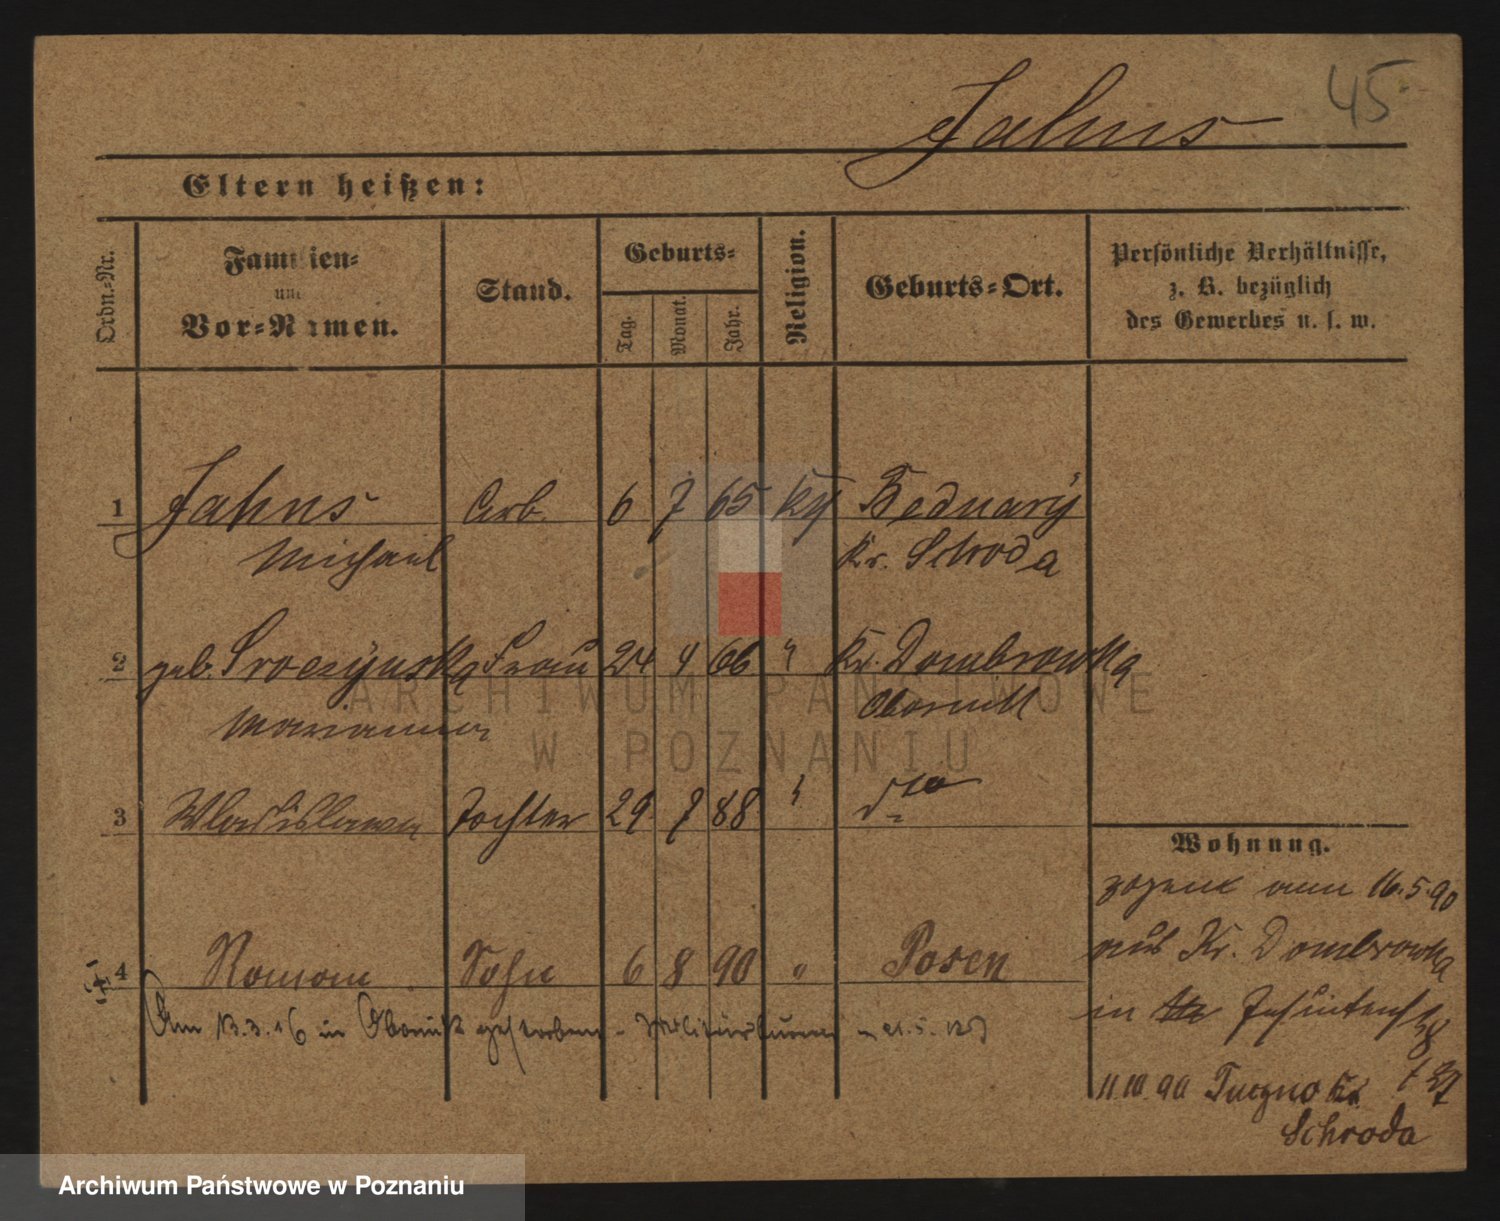 45
Jahns
Eltern heißen:
Ordn.-Nr.
Familien-
und
Vor-Namen.
Stand.
Geburts-
Tag.
Monat.
Jahr.
Religion.
Geburts-Ort.
Persönliche Verhältnisse,
z. B. bezüglich
des Gewerbes u. s. w.
1 Jahns Arb. 6 7 65 Bednary
Michael Kr. Schroda
2 geb. Sroczynska Frau 24 66 " Kr. Dombrowka
Marianna Obornik
3 Wladislawa Tochter 29 7 88 " dto
Wohnung.
zogen am 16.5.90
aus Kr. Dombrowka
4 Roman Sohn 6 8 90 " Posen
in
Am 13.3.16 in Obornik gestorben -
11.10.90 Tuczno Kr.
Schroda
ARCHIWUM PAŃSTWOWE
W POZNANIU
Archiwum Państwowe w Poznaniu